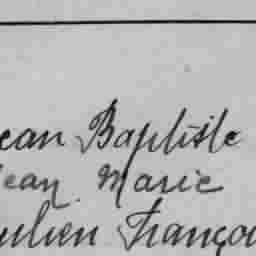 ean Baptiste
ean Marie
ulien Françoi